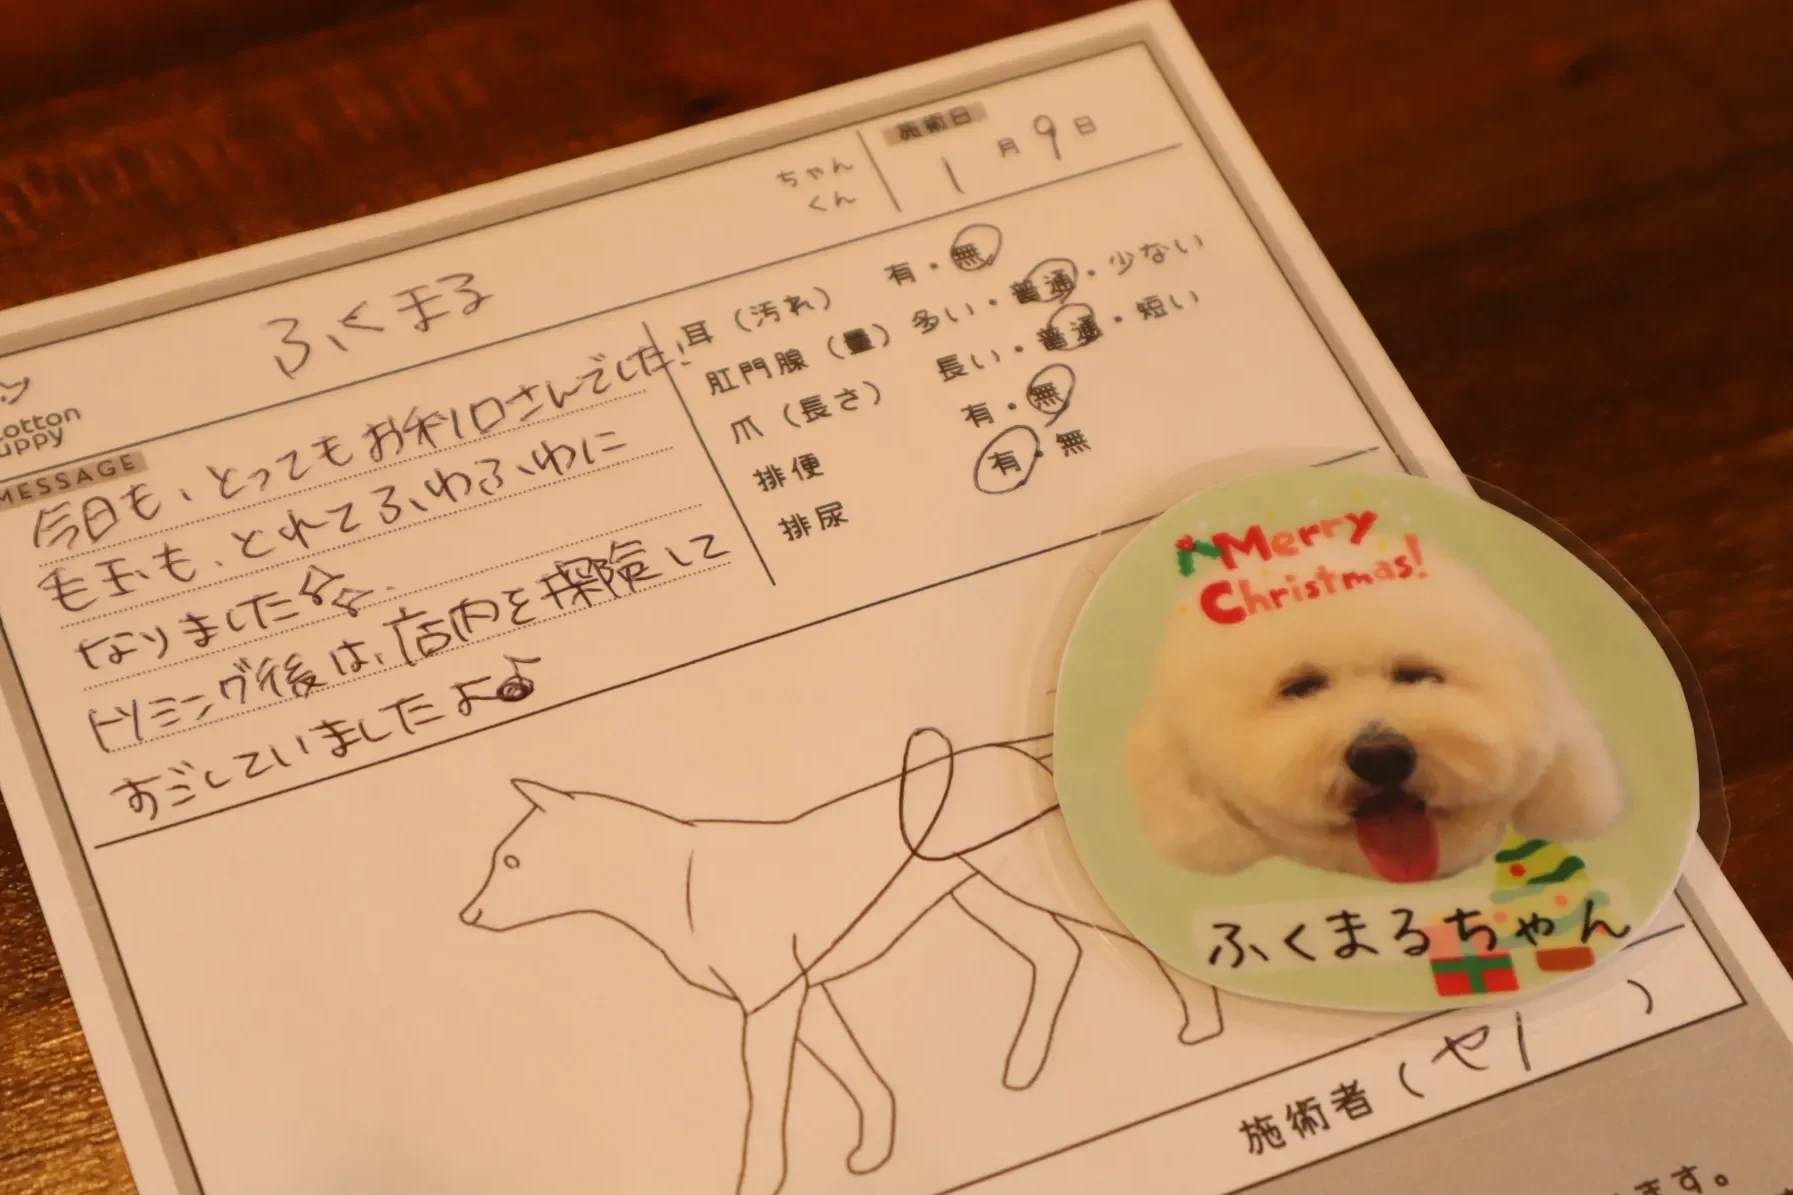 施術日
1月9日
ちゃん
くん
ふくまる
otton
uppy
MESSAGE
今日も、とってもお利口さんでした!
毛玉も、とれてふわふわに
なりました☆☆
トリミング後は、店内を探険して
すごしていましたよ♪
耳（汚れ） 有・無
肛門腺（量） 多い・普通・少ない
爪（長さ） 長い・普通・短い
排便 有・無
排尿 有・無
Merry
Christmas!
ふくまるちゃん
施術者（ ）
ます。